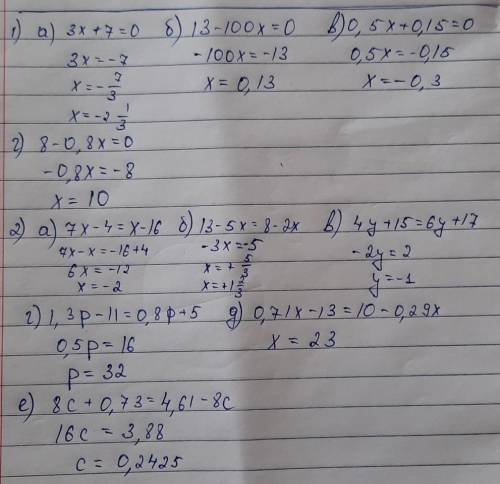 1) а) 3x+7=0 б) 13-100x=0 в) 0,5x+0,15=0
3x=-7 -100x=-13 0,5x=-0,15
x=-7/3 x=0,13 x=-0,3
x=-2 1/3
г) 8-0,8x=0
-0,8x=-8
x=10
2) а) 7x-4=x-16 б) 13-5x=8-2x в) 4y+15=6y+17
7x-x=-16+4 -3x=-5 -2y=2
6x=-12 x=+5/3 y=-1
x=-2 x=+1 2/3
г) 1,3p-11=0,8p+5 д) 0,71x-13=10-0,29x
0,5p=16 x=23
p=32
е) 8c+0,73=4,61-8c
16c=3,88
c=0,2425